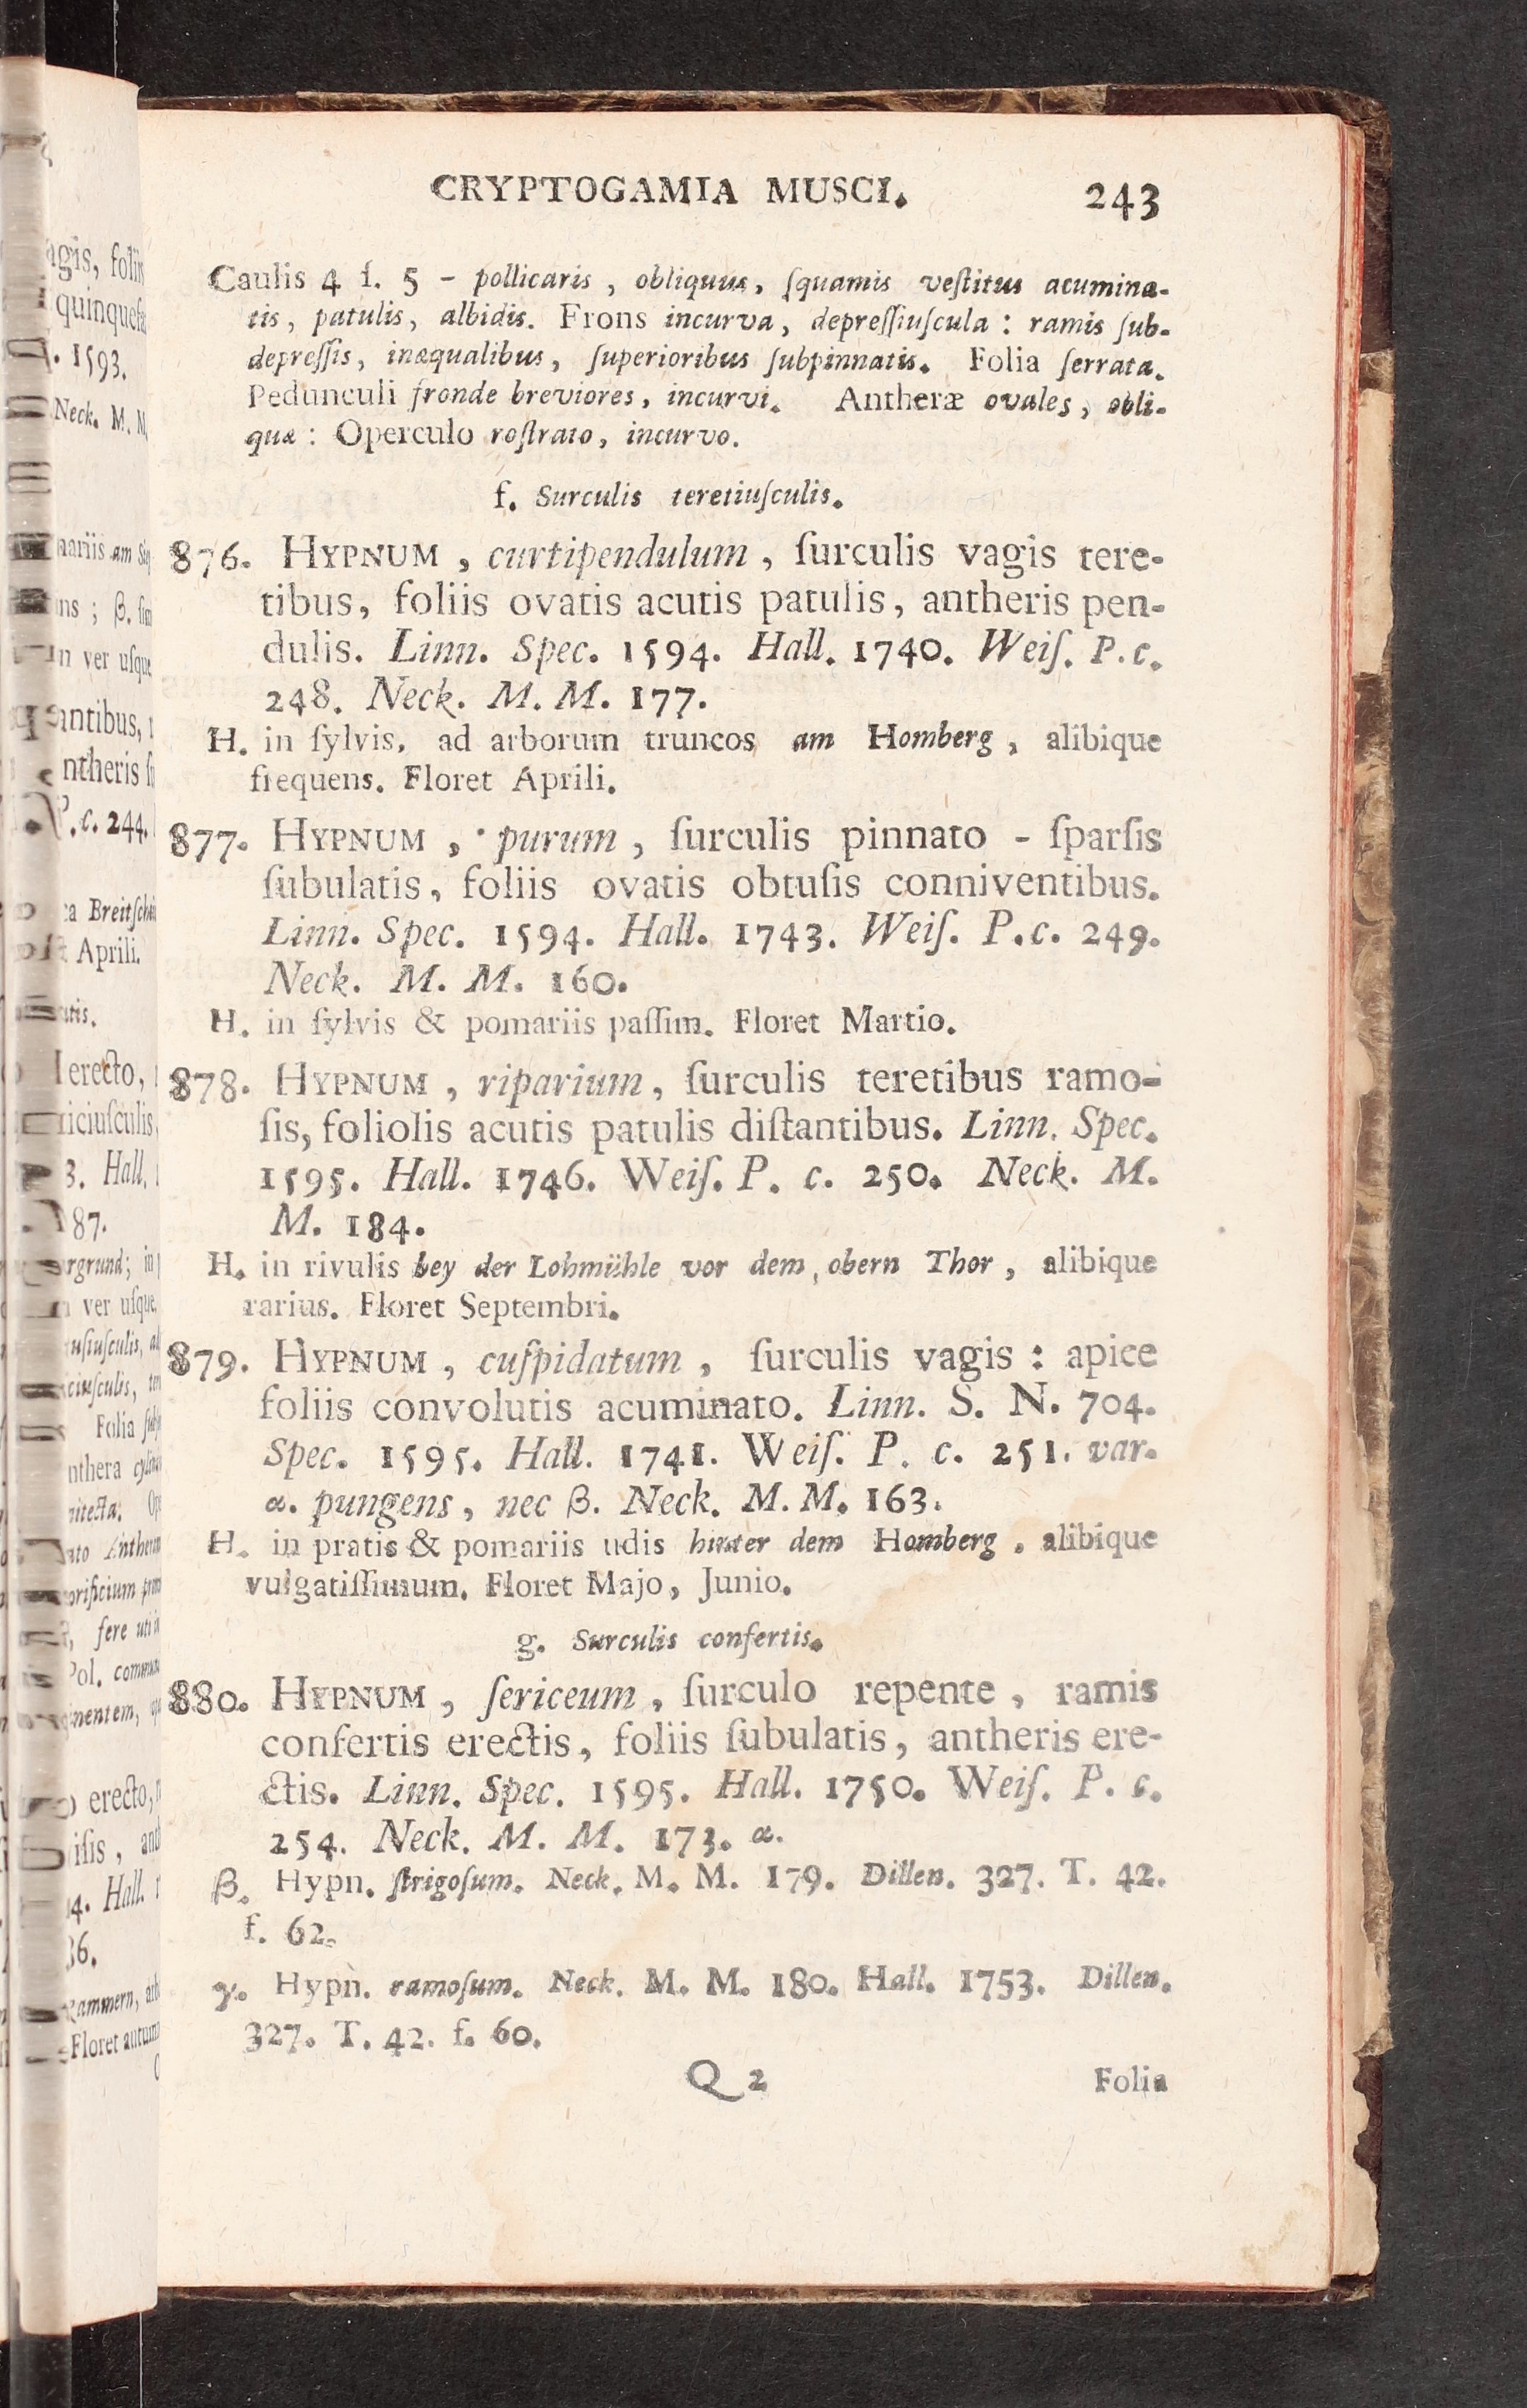 CRYPTOGAMIA MUSCI. 243
Caulis 4 ſ. 5 - pollicaris, obliquus, ſquamis veſtitus acumina-
tis, patulis, albidis. Frons incurva, depreſſiuſcula: ramis ſub-
depreſſis, inæqualibus, ſuperioribus ſubpinnatis. Folia ſerrata.
Pedunculi fronde breviores, incurvi. Antheræ ovales, obli-
quæ: Operculo roſtrato, incurvo.
f. Surculis teretiuſculis.
876. HYPNUM, curtipendulum, ſurculis vagis tere-
tibus, foliis ovatis acutis patulis, antheris pen-
dulis. Linn. Spec. 1594. Hall. 1740. Weiſ. P. c.
248. Neck. M. M. 177.
H. in ſylvis, ad arborum truncos am Homberg, alibique
frequens. Floret Aprili.
877. HYPNUM, purum, ſurculis pinnato - ſparſis
ſubulatis, foliis ovatis obtuſis conniventibus.
Linn. Spec. 1594. Hall. 1743. Weiſ. P. c. 249.
Neck. M. M. 160.
H. in ſylvis & pomariis paſſim. Floret Martio.
878. HYPNUM, riparium, ſurculis teretibus ramo-
ſis, foliolis acutis patulis diſtantibus. Linn. Spec.
1595. Hall. 1746. Weiſ. P. c. 250. Neck. M.
M. 184.
H. in rivulis bey der Lohmühle vor dem obern Thor, alibique
rarius. Floret Septembri.
879. HYPNUM, cuſpidatum, ſurculis vagis: apice
foliis convolutis acuminato. Linn. S. N. 704.
Spec. 1595. Hall. 1741. Weiſ. P. c. 251. var.
α. pungens, nec β. Neck. M. M. 163.
H. in pratis & pomariis udis hinter dem Homberg, alibique
vulgatiſſimum. Floret Majo, Junio.
g. Surculis confertis.
880. HYPNUM, ſericeum, ſurculo repente, ramis
confertis erectis, foliis ſubulatis, antheris ere-
ctis. Linn. Spec. 1595. Hall. 1750. Weiſ. P. c.
254. Neck. M. M. 173. α.
β. Hypn. ſtrigoſum. Neck. M. M. 179. Dillen. 327. T. 42.
f. 62.
γ. Hypn. ramoſum. Neck. M. M. 180. Hall. 1753. Dillen.
327. T. 42. f. 60.
Q 2 Folia